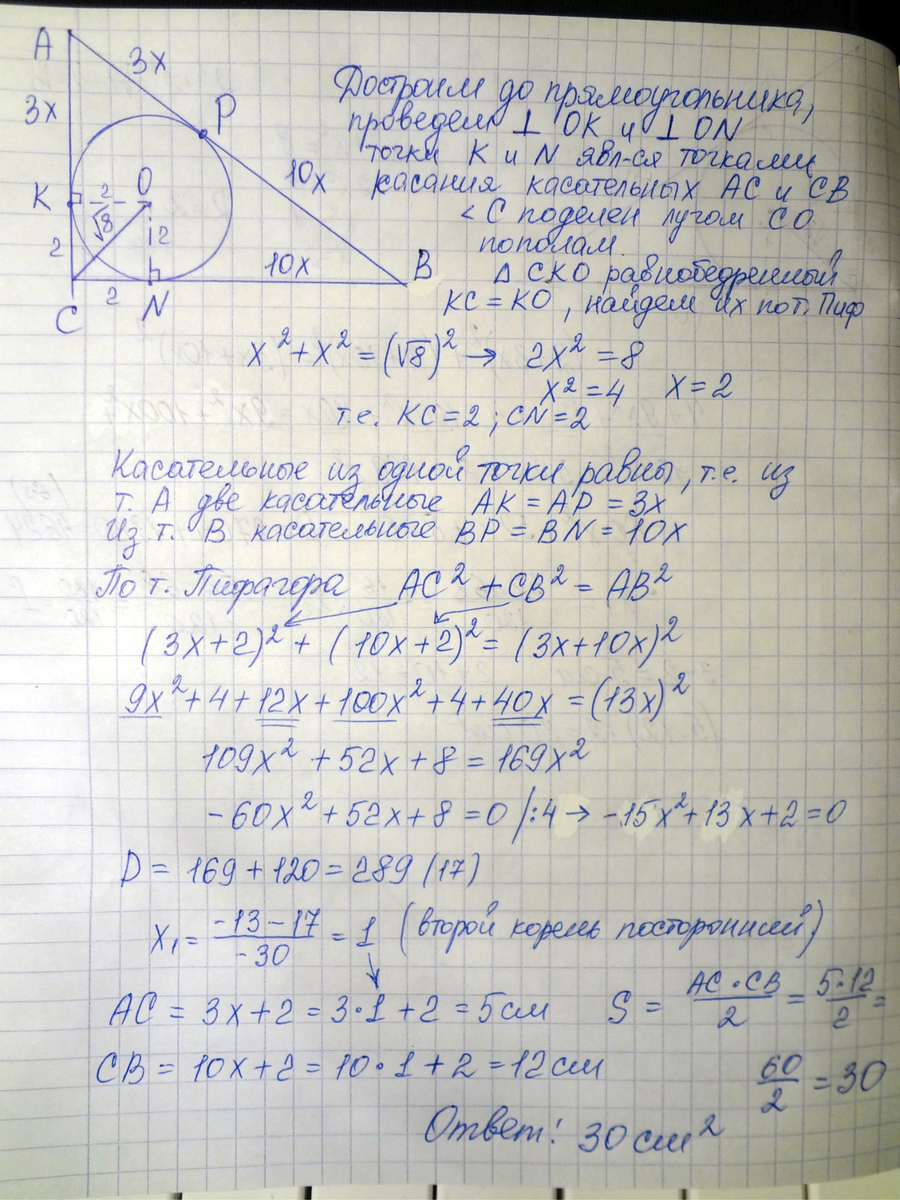 A
3x
3x
P
10x
K
2
O
√8
2
2
10x
B
C
2
N
Достроим до прямоугольника,
проведем ⊥ OK и ⊥ ON
точки K и N явл-ся точками
касания касательных AC и CB
∠C поделен лучом CO
пополам.
Δ CKO равнобедренный
KC = KO , найдем их по т. Пиф
x² + x² = (√8)² → 2x² = 8
x² = 4   x = 2
т.е. KC = 2 ; CN = 2
Касательные из одной точки равны, т.е. из
т. A две касательные AK = AP = 3x
Из т. B касательные BP = BN = 10x
По т. Пифагора AC² + CB² = AB²
(3x+2)² + (10x+2)² = (3x+10x)²
9x² + 4 + 12x + 100x² + 4 + 40x = (13x)²
109x² + 52x + 8 = 169x²
-60x² + 52x + 8 = 0 /:4 → -15x² + 13x + 2 = 0
D = 169 + 120 = 289 (17)
x₁ = (-13-17)/-30 = 1 (второй корень посторонний)
AC = 3x+2 = 3·1 + 2 = 5 см   S = AC·CB/2 = 5·12/2 =
CB = 10x+2 = 10·1 + 2 = 12 см   60/2 = 30
Ответ: 30 см²